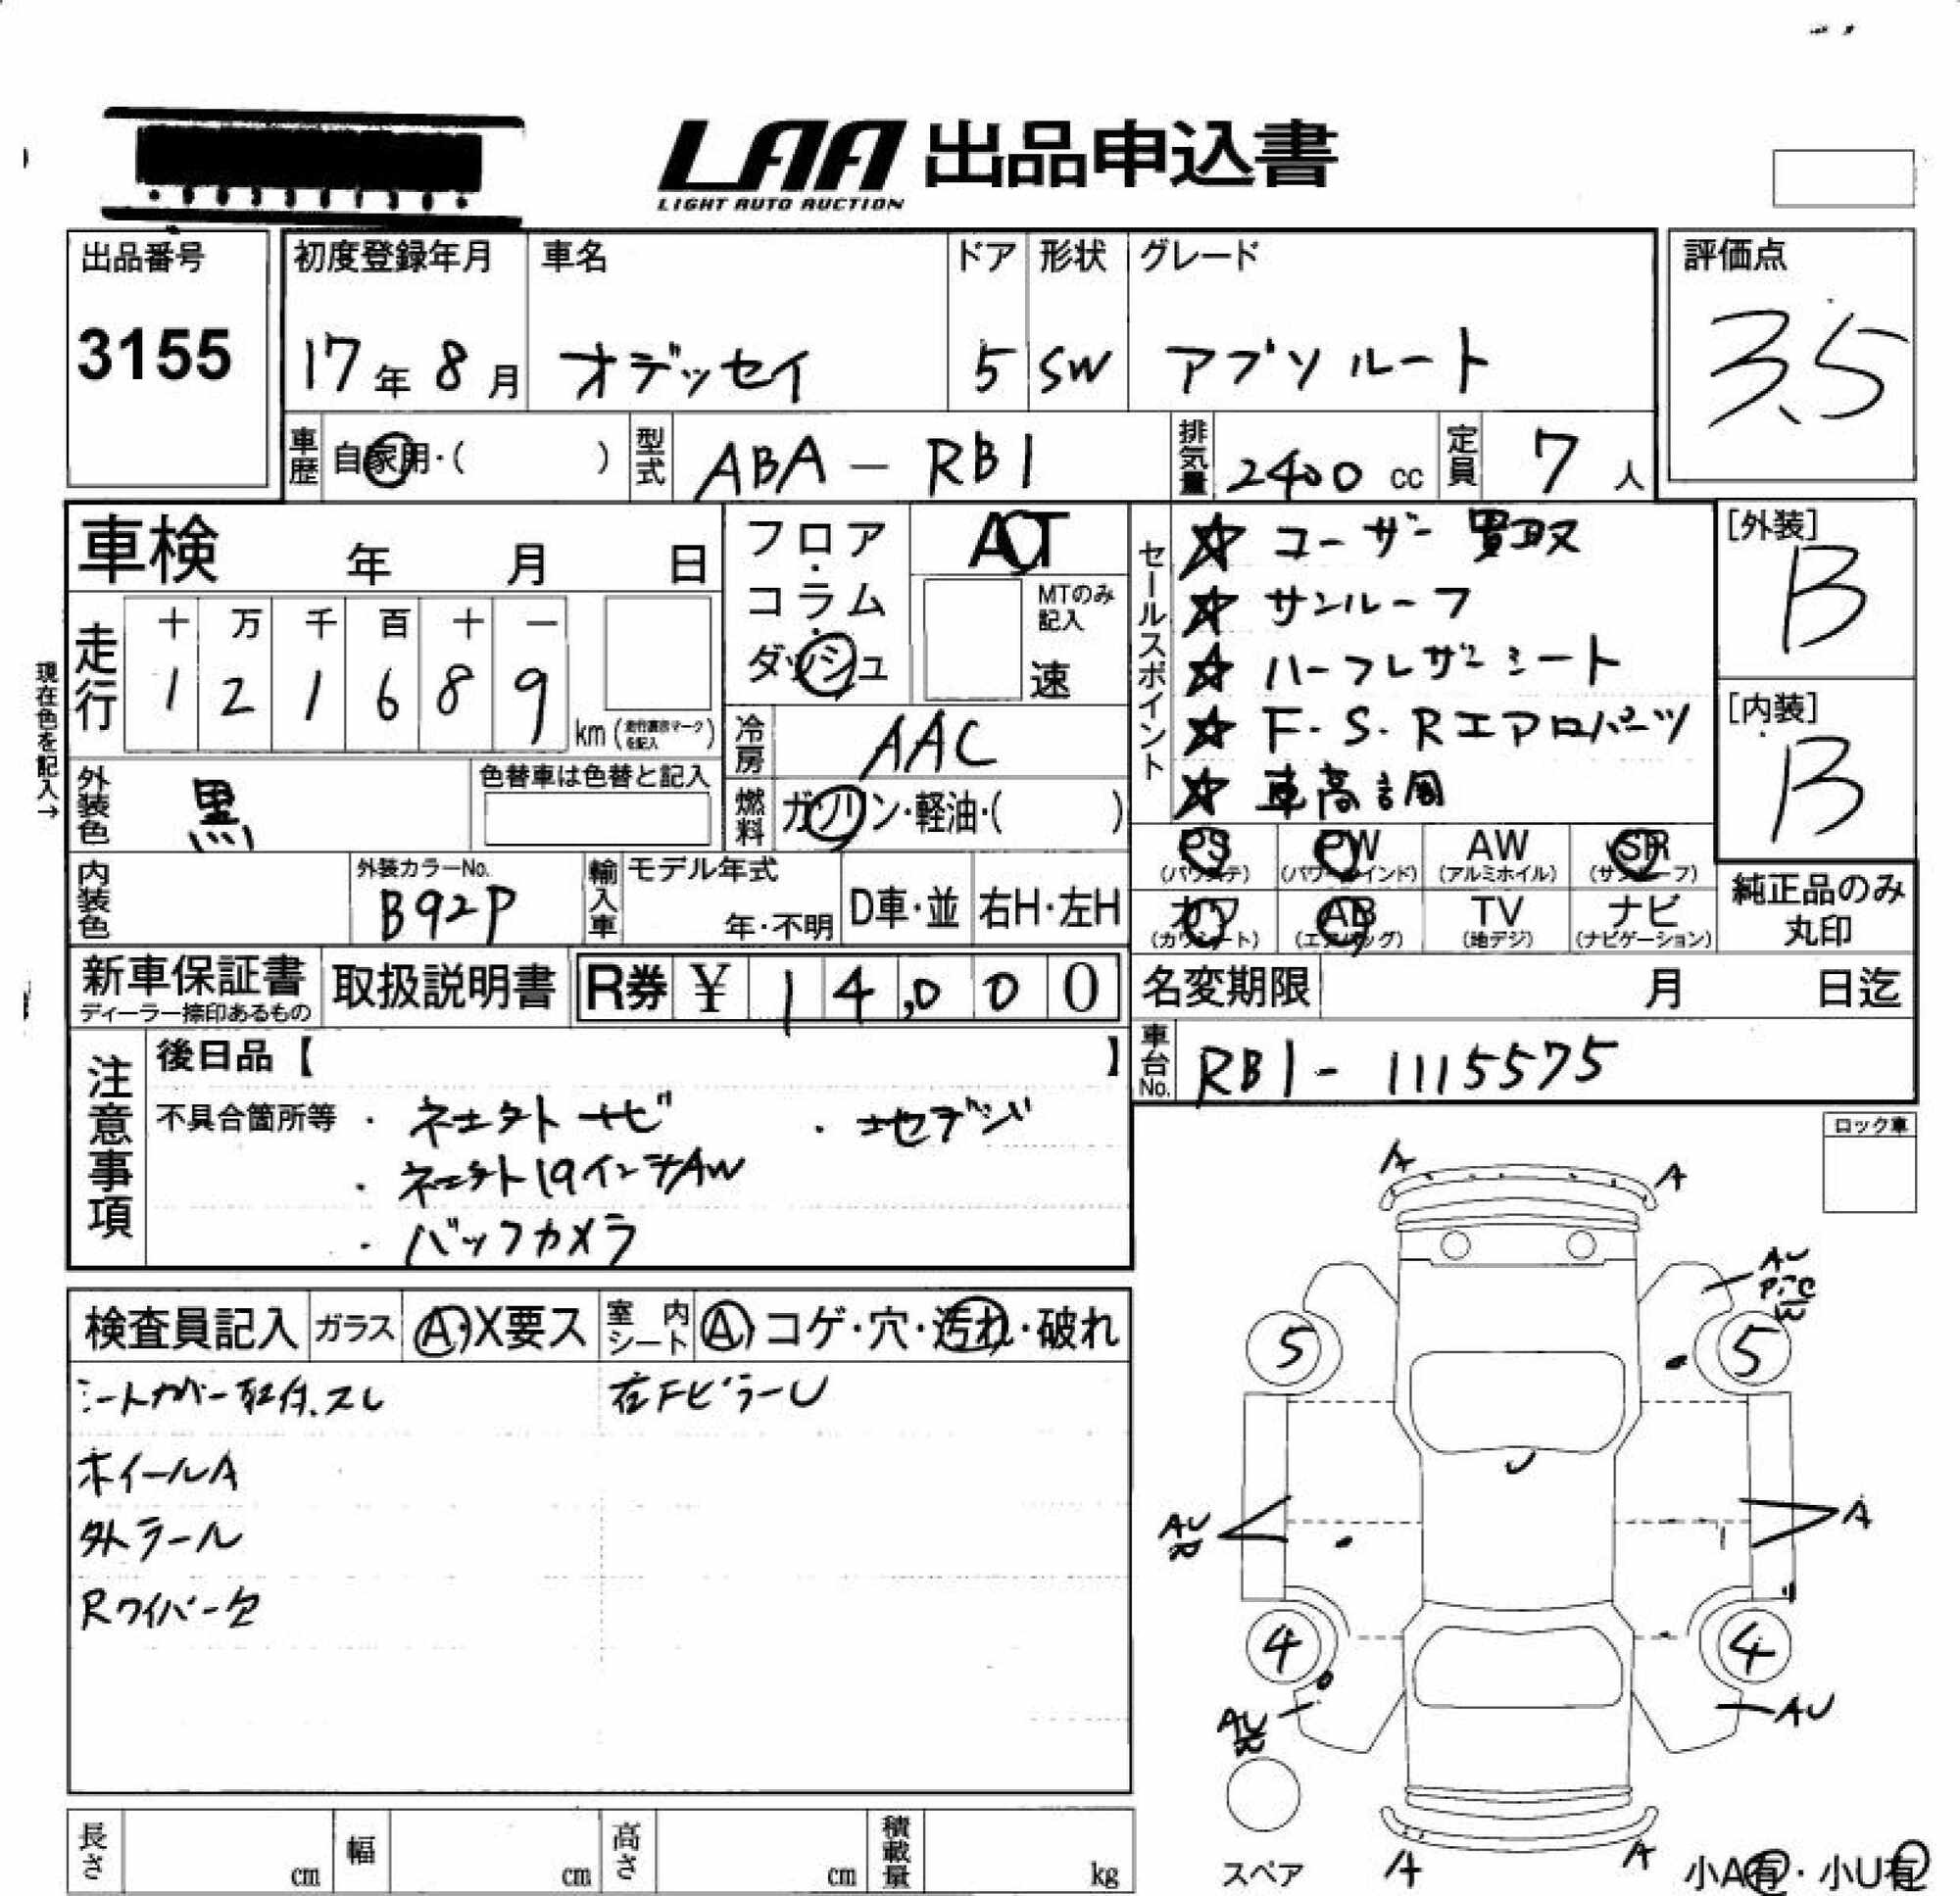 LAA 出品申込書
LIGHT AUTO AUCTION
出品番号
3155
初度登録年月
17年 8月
車名
オデッセイ
ドア
5
形状
SW
グレード
アブソルート
評価点
3.5
車歴
自家用・( )
型式
ABA-RB1
排気量
2400 cc
定員
7 人
車検 年 月 日
現在色を記入→
走行
十 万 千 百 十 一
1 2 1 6 8 9 km
(走行裏吉マーク
を記入)
フロア
・
コラム
・
ダッシュ
AT
MTのみ
記入
速
冷房
AAC
燃料
ガソリン・軽油・( )
外装色
黒
色替車は色替と記入
内装色
外装カラーNo.
B92P
輸入車
モデル年式
年・不明
D車・並
右H・左H
セールスポイント
☆ユーザー買取
☆サンルーフ
☆ハーフレザーシート
☆F・S・Rエアロパーツ
☆車高調
[外装]
B
[内装]
B
PS
(パワステ)
PW
(パワーウインド)
AW
(アルミホイル)
SR
(サンルーフ)
カワ
(カワシート)
AB
(エアバッグ)
TV
(地デジ)
ナビ
(ナビゲーション)
純正品のみ
丸印
新車保証書
ディーラー捺印あるもの
取扱説明書
R券 ¥ 14,000
名変期限 月 日迄
車台No.
RB1-1115575
注意事項
後日品【 】
不具合箇所等 ・社外ナビ ・地デジ
・社外19インチAW
・バックカメラ
ロック車
検査員記入
ガラス
A・X要ス
室内シート
A・コゲ・穴・汚れ・破れ
シートカバー取付、スレ
右FピラーU
ホイールA
外ラール
Rワイパー欠
A
A
AU
P
W
5
5
U
AU
A
4
4
AU
AU
スペア
A
A
小A有・小U有
長さ cm
幅 cm
高さ cm
積載量 kg